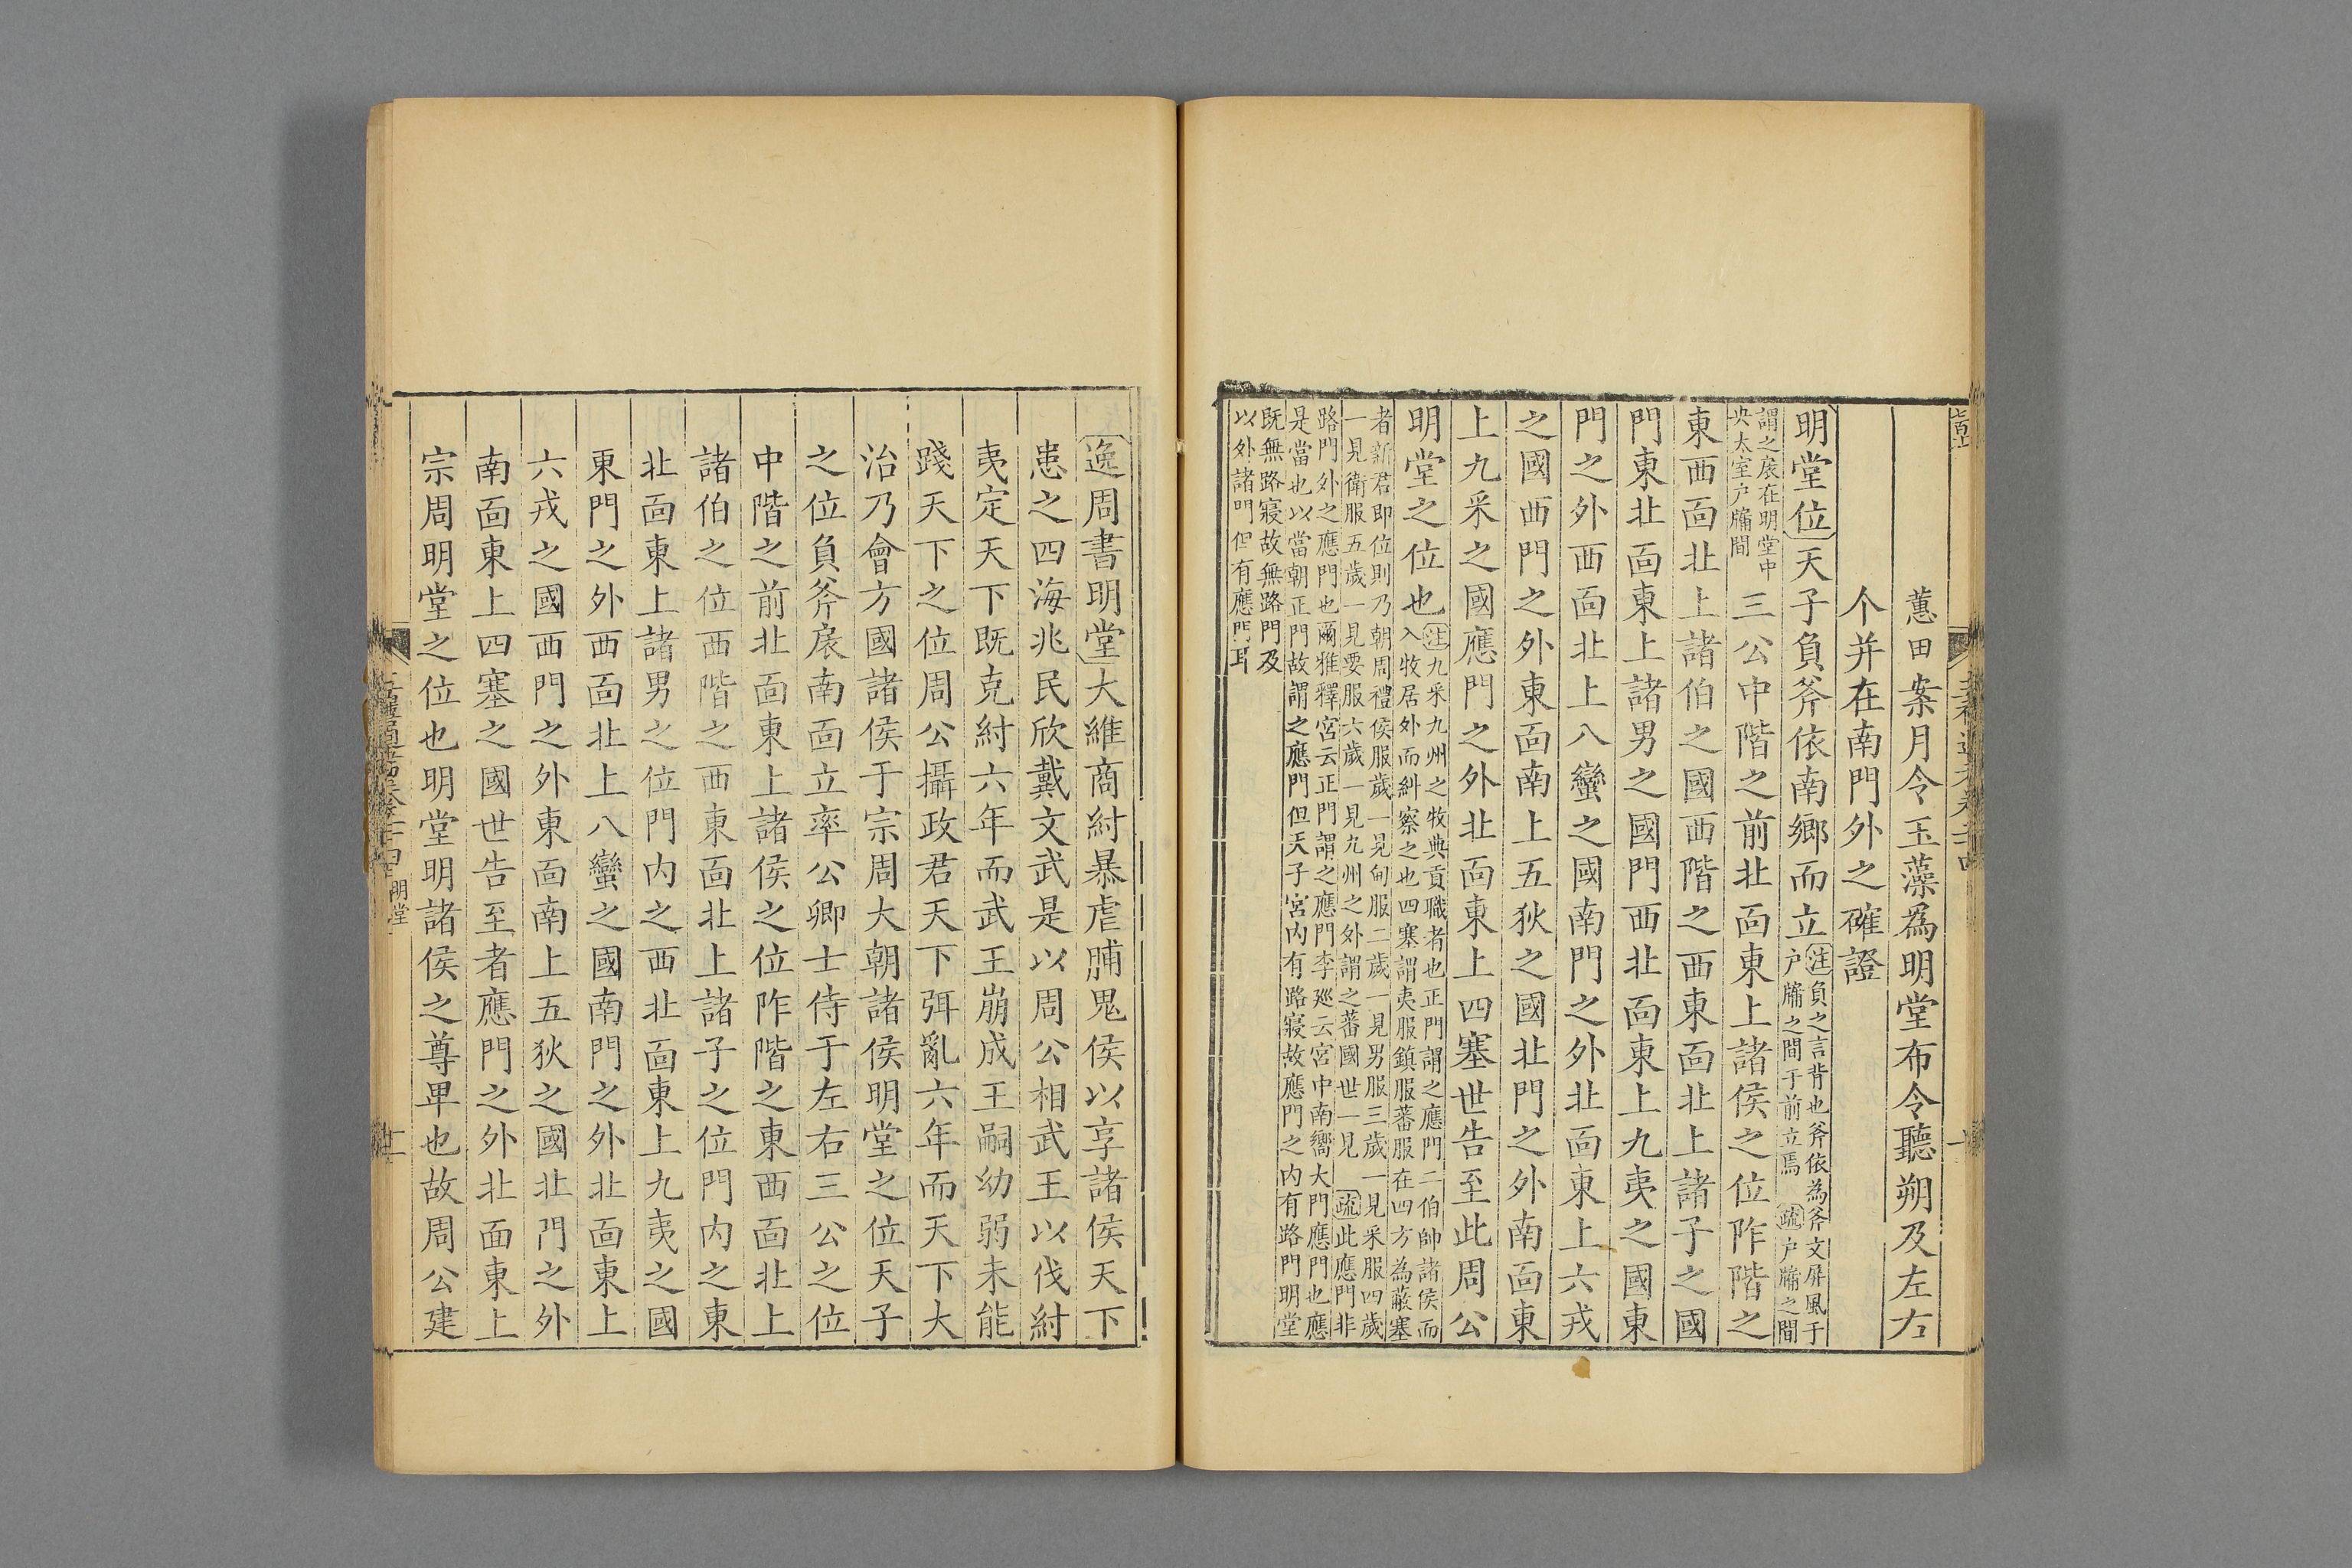 蕙田案月令玉藻爲明堂布令聽朔及左右
个并在南門外之確證
明堂位天子負斧依南鄉而立注負之言背也斧依為斧文屏風于
戶牖之間于前立焉 疏戶牖之間
謂之扆在明堂中
央太室戶牖間
三公中階之前北面東上諸侯之位阼階之
東西面北上諸伯之國西階之西東面北上諸子之國
門東北面東上諸男之國門西北面東上九夷之國東
門之外西面北上八蠻之國南門之外北面東上六戎
之國西門之外東面南上五狄之國北門之外南面東
上九采之國應門之外北面東上四塞世告至此周公
明堂之位也注九采九州之牧典貢職者也正門謂之應門二伯帥諸侯而
入牧居外而糾察之也四塞謂夷服鎮服蕃服在四方為蔽塞
者新君即位則乃朝周禮侯服歲一見甸服二歲一見男服三歲一見采服四歲
一見衛服五歲一見要服六歲一見九州之外謂之蕃國世一見 疏此應門非
路門外之應門也爾雅釋宮云正門謂之應門李廵云宮中南嚮大門應門也應
是當也以當朝正門故謂之應門但天子宮內有路寢故應門之內有路門明堂
既無路寢故無路門及
以外諸門但有應門耳
逸周書明堂大維商紂暴虐脯鬼侯以享諸侯天下
患之四海兆民欣戴文武是以周公相武王以伐紂
夷定天下既克紂六年而武王崩成王嗣幼弱未能
踐天下之位周公攝政君天下弭亂六年而天下大
治乃會方國諸侯于宗周大朝諸侯明堂之位天子
之位負斧扆南面立率公卿士侍于左右三公之位
中階之前北面東上諸侯之位阼階之東西面北上
諸伯之位西階之西東面北上諸子之位門內之東
北面東上諸男之位門內之西北面東上九夷之國
東門之外西面北上八蠻之國南門之外北面東上
六戎之國西門之外東面南上五狄之國北門之外
南面東上四塞之國世告至者應門之外北面東上
宗周明堂之位也明堂明諸侯之尊卑也故周公建
明堂